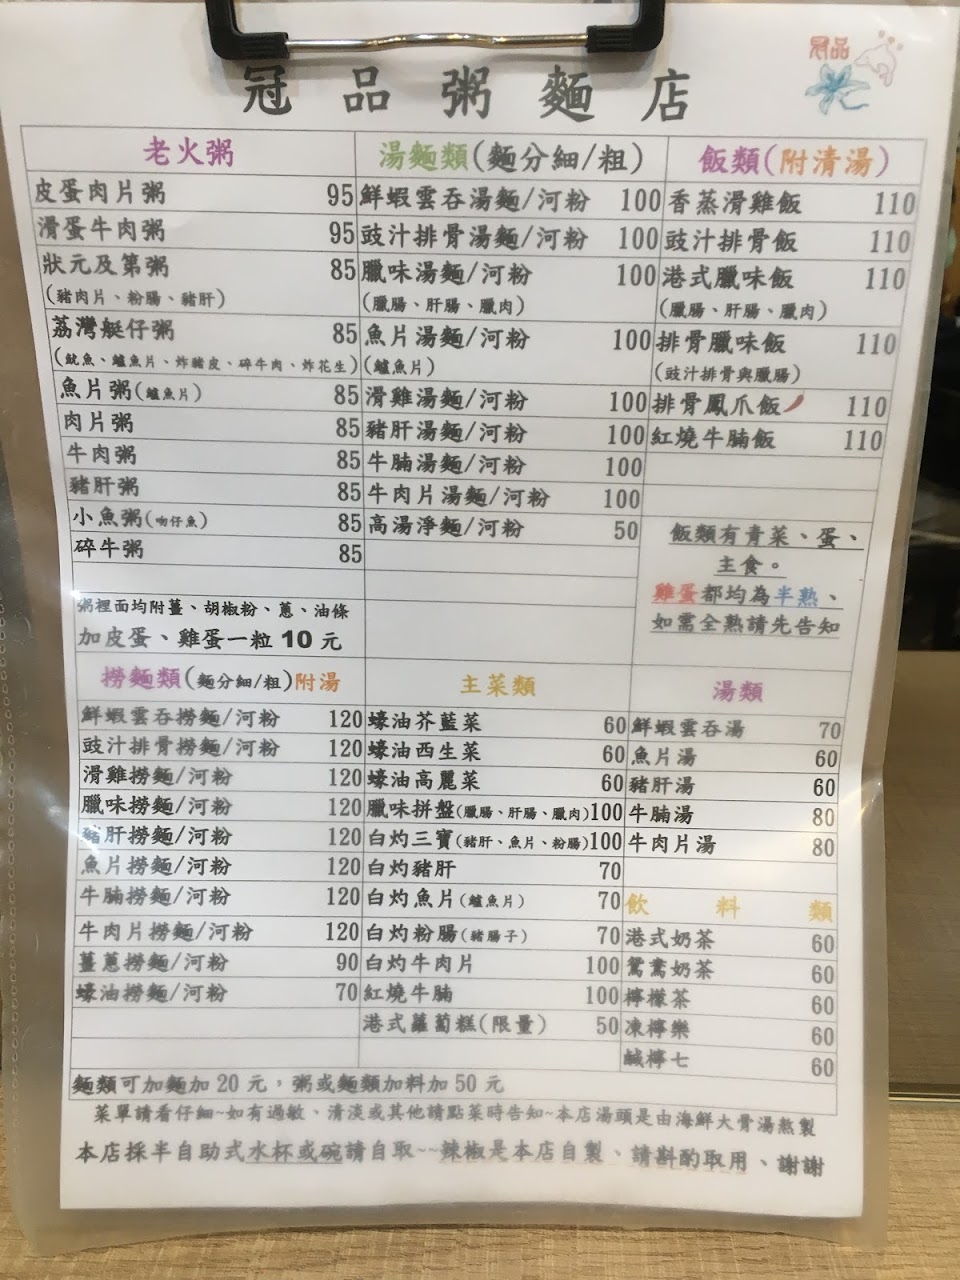 冠品粥麵店
冠品
老火粥
皮蛋肉片粥 95
滑蛋牛肉粥 95
狀元及第粥 85
(豬肉片、粉腸、豬肝)
荔灣艇仔粥 85
(魷魚、鱸魚片、炸豬皮、碎牛肉、炸花生)
魚片粥(鱸魚片) 85
肉片粥 85
牛肉粥 85
豬肝粥 85
小魚粥(吻仔魚) 85
碎牛粥 85
粥裡面均附薑、胡椒粉、蔥、油條
加皮蛋、雞蛋一粒 10 元
湯麵類(麵分細/粗)
鮮蝦雲吞湯麵/河粉 100
豉汁排骨湯麵/河粉 100
臘味湯麵/河粉 100
(臘腸、肝腸、臘肉)
魚片湯麵/河粉 100
(鱸魚片)
滑雞湯麵/河粉 100
豬肝湯麵/河粉 100
牛腩湯麵/河粉 100
牛肉片湯麵/河粉 100
高湯淨麵/河粉 50
飯類(附清湯)
香蒸滑雞飯 110
豉汁排骨飯 110
港式臘味飯 110
(臘腸、肝腸、臘肉)
排骨臘味飯 110
(豉汁排骨與臘腸)
排骨鳳爪飯 110
紅燒牛腩飯 110
飯類有青菜、蛋、
主食。
雞蛋都均為半熟、
如需全熟請先告知
撈麵類(麵分細/粗)附湯
鮮蝦雲吞撈麵/河粉 120
豉汁排骨撈麵/河粉 120
滑雞撈麵/河粉 120
臘味撈麵/河粉 120
豬肝撈麵/河粉 120
魚片撈麵/河粉 120
牛腩撈麵/河粉 120
牛肉片撈麵/河粉 120
薑蔥撈麵/河粉 90
蠔油撈麵/河粉 70
主菜類
蠔油芥藍菜 60
蠔油西生菜 60
蠔油高麗菜 60
臘味拼盤(臘腸、肝腸、臘肉) 100
白灼三寶(豬肝、魚片、粉腸) 100
白灼豬肝 70
白灼魚片(鱸魚片) 70
白灼粉腸(豬腸子) 70
白灼牛肉片 100
紅燒牛腩 100
港式蘿蔔糕(限量) 50
湯類
鮮蝦雲吞湯 70
魚片湯 60
豬肝湯 60
牛腩湯 80
牛肉片湯 80
飲料類
港式奶茶 60
鴛鴦奶茶 60
檸檬茶 60
凍檸樂 60
鹹檸七 60
麵類可加麵加 20 元，粥或麵類加料加 50 元
菜單請看仔細~如有過敏、清淡或其他請點菜時告知~本店湯頭是由海鮮大骨湯熬製
本店採半自助式水杯或碗請自取~~辣椒是本店自製、請斟酌取用、謝謝